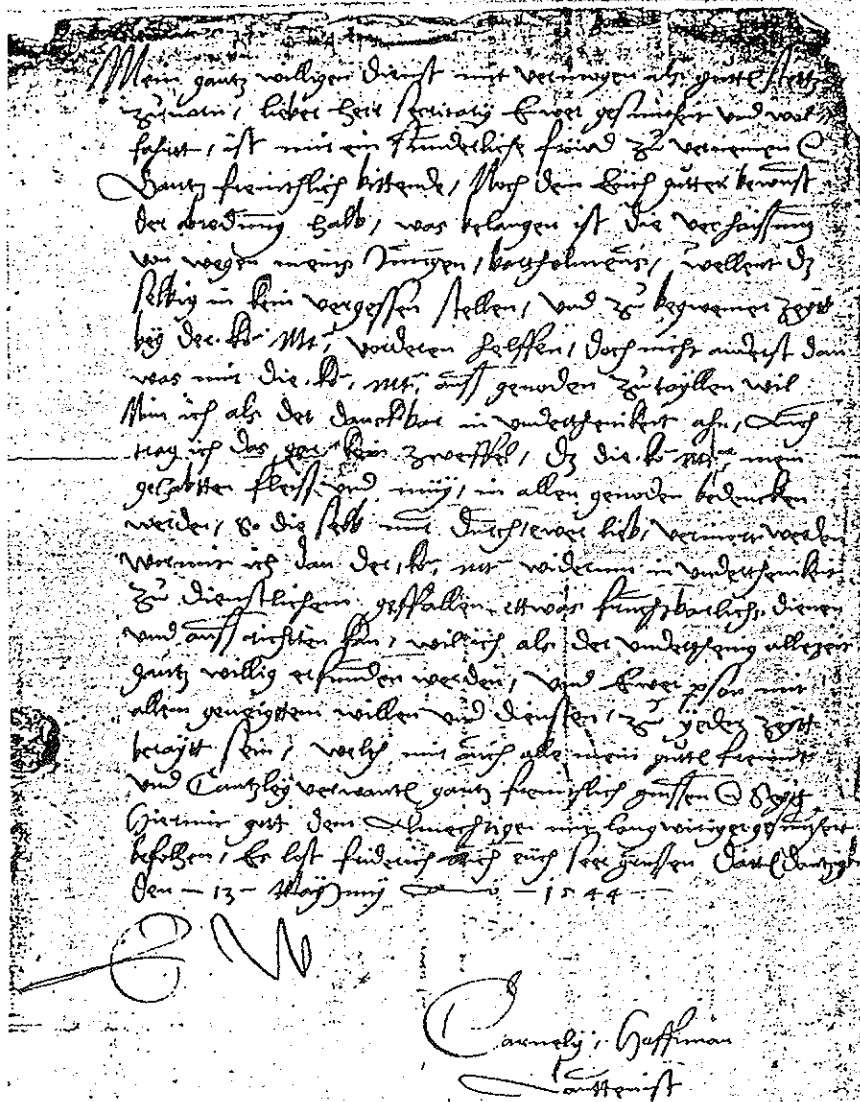 Mein gantz willigen dienst mit vermugen als guttes stettz
zuuorn, lieber herr secritary Ewer gesuntheit und wol
fahrtt, ist mir ein sunderliche fröud zu vernemen
Gantz freintlich bittende, Noch dem Euch gutter bewust
der abredung halb, was belangen ist die verhaissung
von wegen meins Jungen, bartholmeus, wellent dz
selbig in kein vergessen stellen, und zu beqwemer zeytt
bey der ko. Mt. vorderen helffen, doch nicht anderst dan
was mir die ko. mt. auss genoden zu tayllen wil
Nim ich als der danckbar in undertheniket ahn, Auch
trag ich das gar kein zweyffel, dz die ko. mt. mein
gehabtten fleiss und müy, in allen genoden bedencken
werden, so die selb nur durch ewer lieb, vermant werden
wormit ich dan der ko. mt. widerum in undertheniket
zu dienstlichem gefallen ettwas fruchtbarlichs dienen
und auss richtten kan, wil ich als der underthenig allezeit
gantz willig erfunden werden, und Ewer pson mit
allem geneygtten willen und diensten, zu yeder zeytt
beraytt sein, welch mir auch alle mein gutte freundt
und Cantzley verwantte gantz freintlich grüssen Seyt
Hiermit gott dem Almechtigen mit langwiriger gesuntheit
befolhen, Es lest friderich auch euch seer grüssen Datt Dantzig
den - 13 - May 1544
E W
Cornely Hoffman
Lauttenist